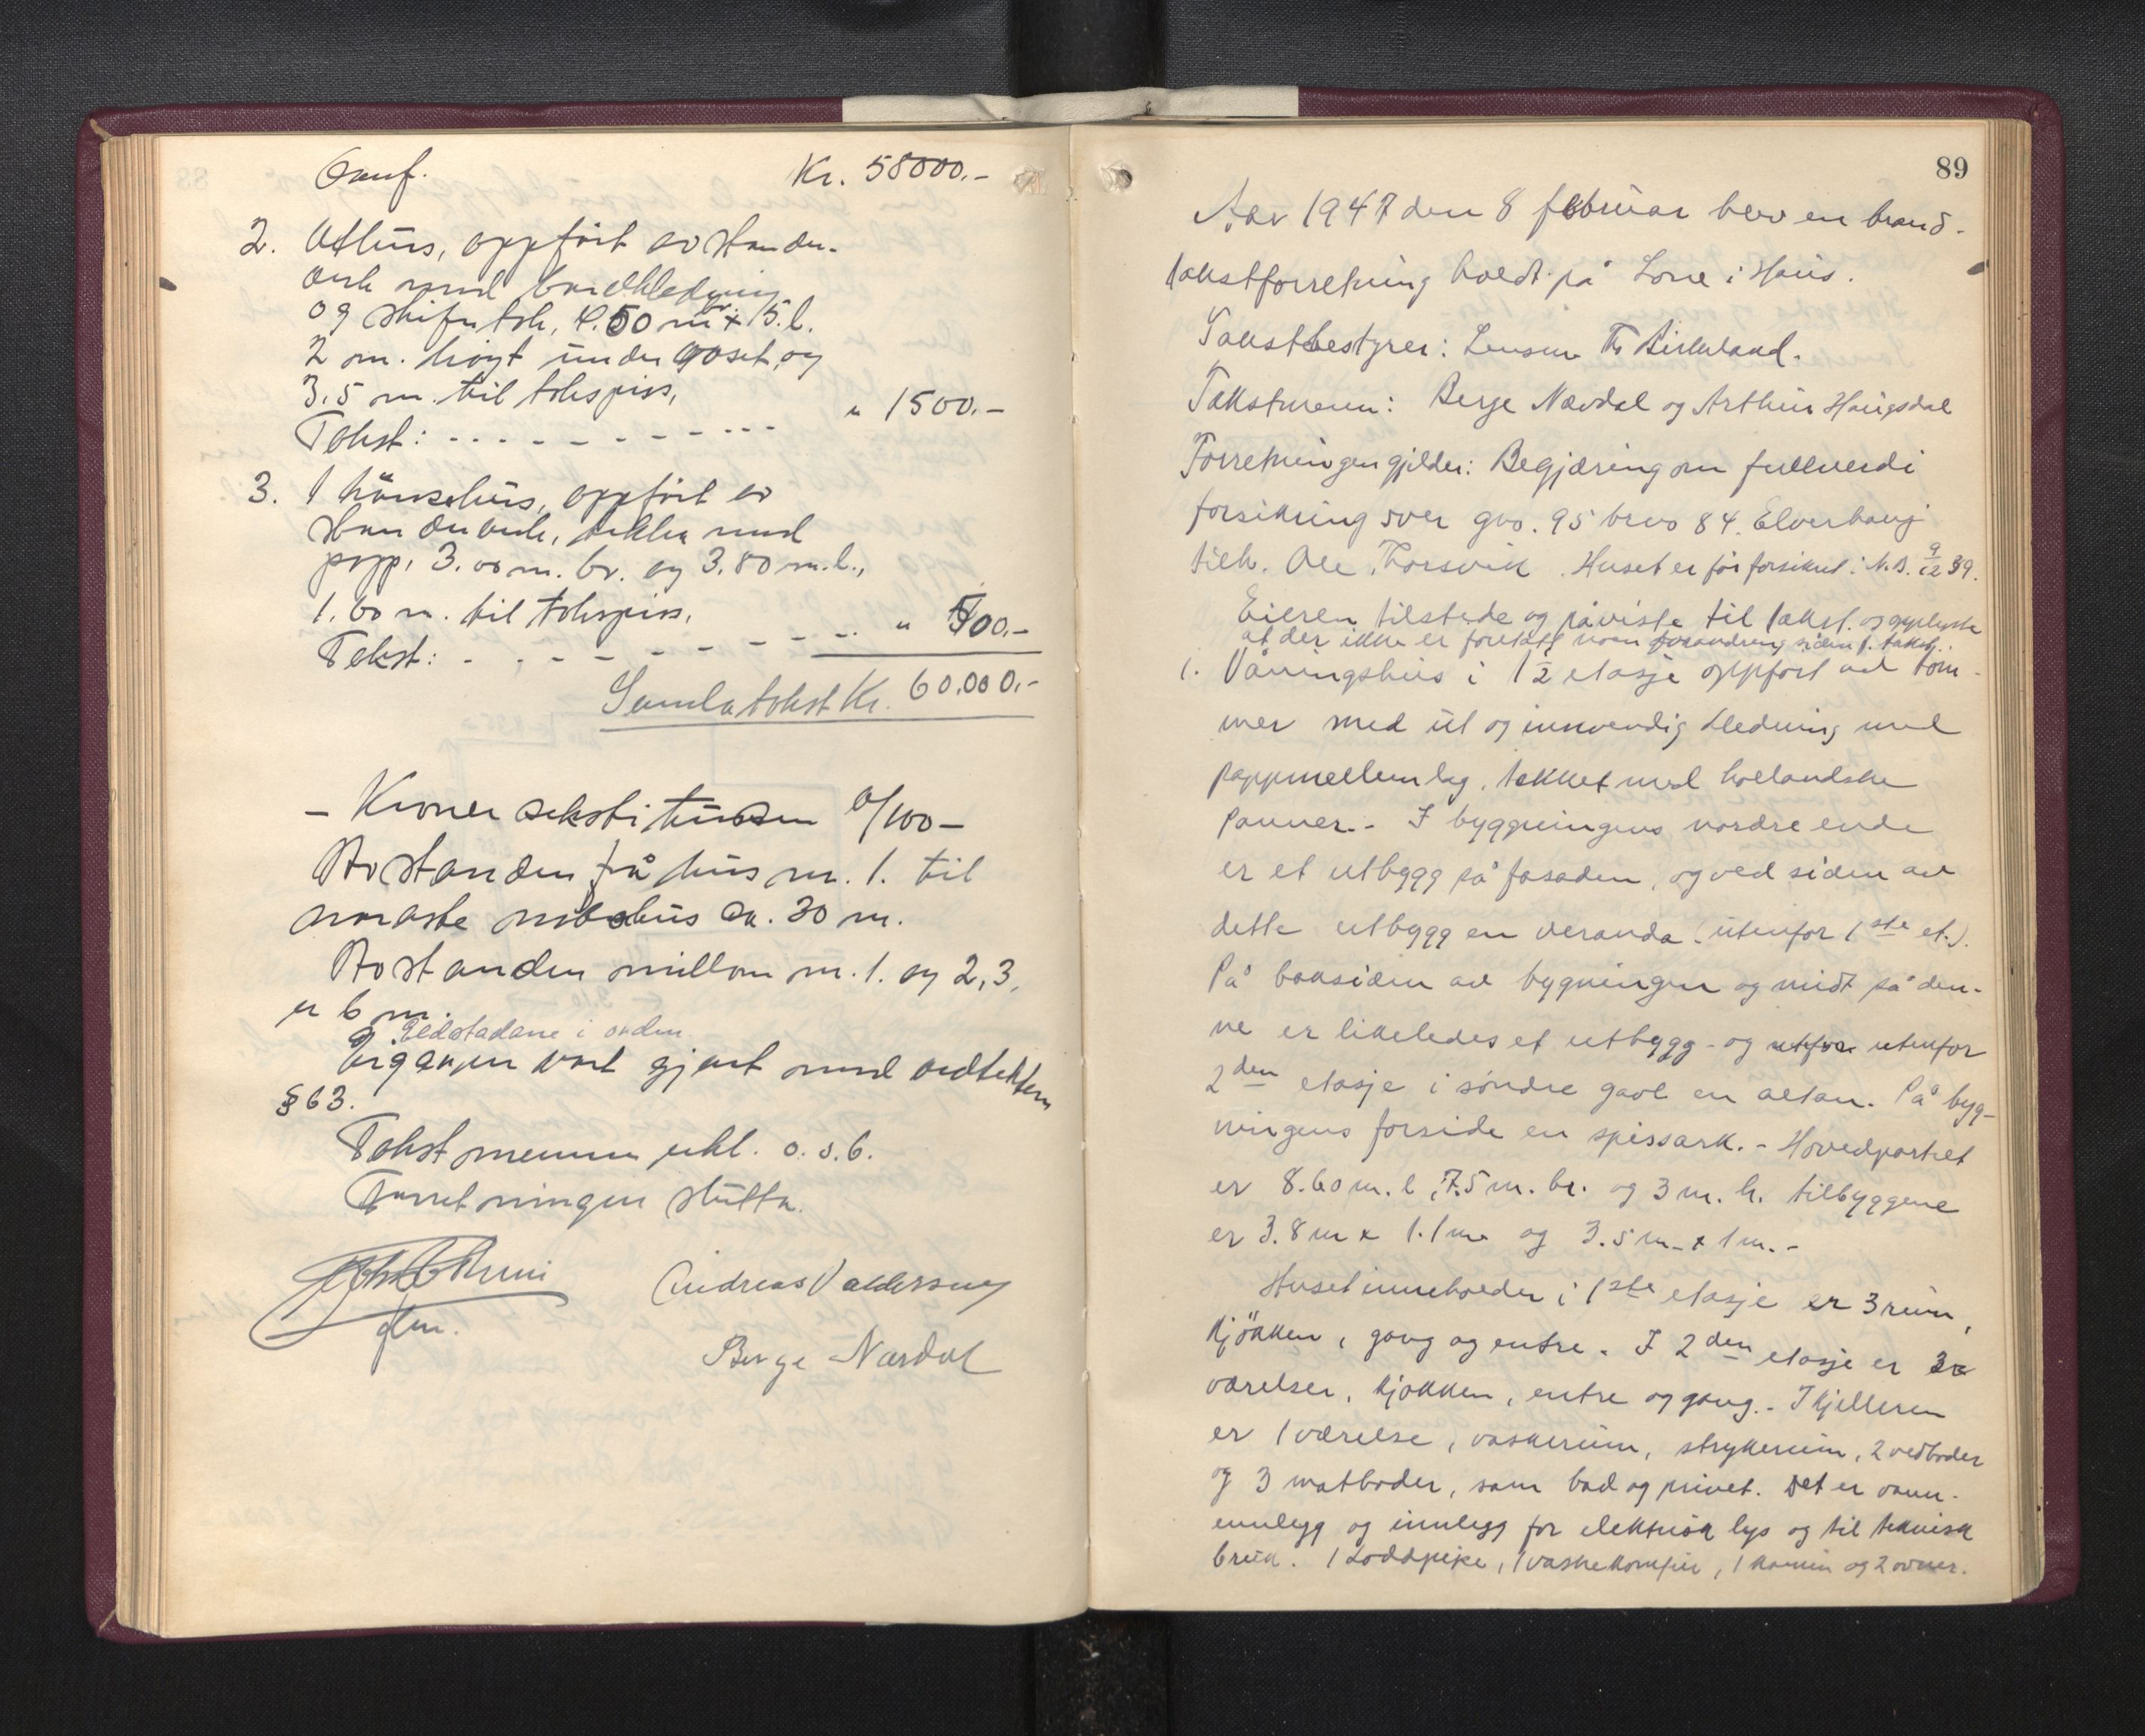 Omf. Kr. 58000.-
2. Uthus, oppført av stender-
verk med bordkledning
og skifertak, 4.50 m br. x 5. l.
2 m. høgt under raset, og
3.5 m. til takspiss,
Takst: - - - - - - - - - - - " 1500.-
3. 1 hønsehus, oppført av
stenderverk, tekka med
papp, 3.00 m. br. og 3.80 m. l.,
1.60 m. til takspiss.
Takst: - - - - - - - - - " 500.-
Samla takst Kr. 60.000.-
- Kroner seksti tusen 0/100 -
Avstanden frå hus nr. 1. til
næraste nabohus ca. 30 m.
Avstanden millom nr. 1. og 2, 3,
er 6 m.
Eldstadane i orden
Eigaren vart gjort med vedtektene
§ 63.
Takstmennene
Forretningen slutta.
Andreas Valdersnes
Berge Nævdal
89
Aar 1947 den 8 februar blev en brand-
takstforretning holdt på Lone i Haus.
Takstbestyrer: Lensm. Th Birkeland.
Takstmenn: Berge Nævdal og Arthur Haugsdal
Forretningen gjelder: Begjæring om fullverdi
forsikring over gno. 95 brno 84. Elverhaug
tilh. Ole Thorsvik. Huset er før forsikret i N.B. 9/12 39.
Eieren tilstede og påviste til takst. og opplyste
at der ikke er foretatt noen forandring siden f. takst.
1. Våningshus i 1 1/2 etasje oppført av töm-
mer med ut og innvendig kledning med
pappmellemlag, tekket med hollandske
panner. - I byggningens nordre ende
er et utbygg på fasaden, og ved siden av
dette utbygg en veranda (utenfor 1ste et.).
På baksiden av bygningen og midt på den-
ne er likeledes et utbygg - og utfor utenfor
2den etasje i søndre gavl en altan. På byg-
ningens forside en spissark. - Hovedpartiet
er 8.60 m. l, 7.5 m. br. og 3 m. h. tilbyggene
er 3.8 m x 1.1 m og 3.5 m. x 1 m. -
Huset inneholder i 1ste etasje er 3 rum,
kjökken, gang og entre. I 2den etasje er 3
værelser, kjøkken, entre og gang. - I kjelleren
er 1 værelse, vaskerum, strykerum, 2 vedboder
og 3 matboder, samt bad og privet. Det er vann-
innlegg og innlegg for elektrisk lys og til teknisk
bruk. 1 Loddpipe, 1 vaskekomfur, 1 kamin og 2 ovner.